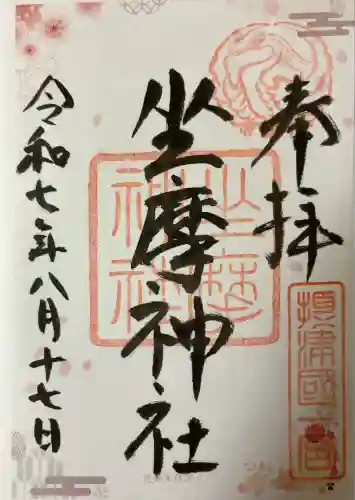 奉拝
坐摩神社
令和七年八月十七日
摂津國一宮
坐摩神社